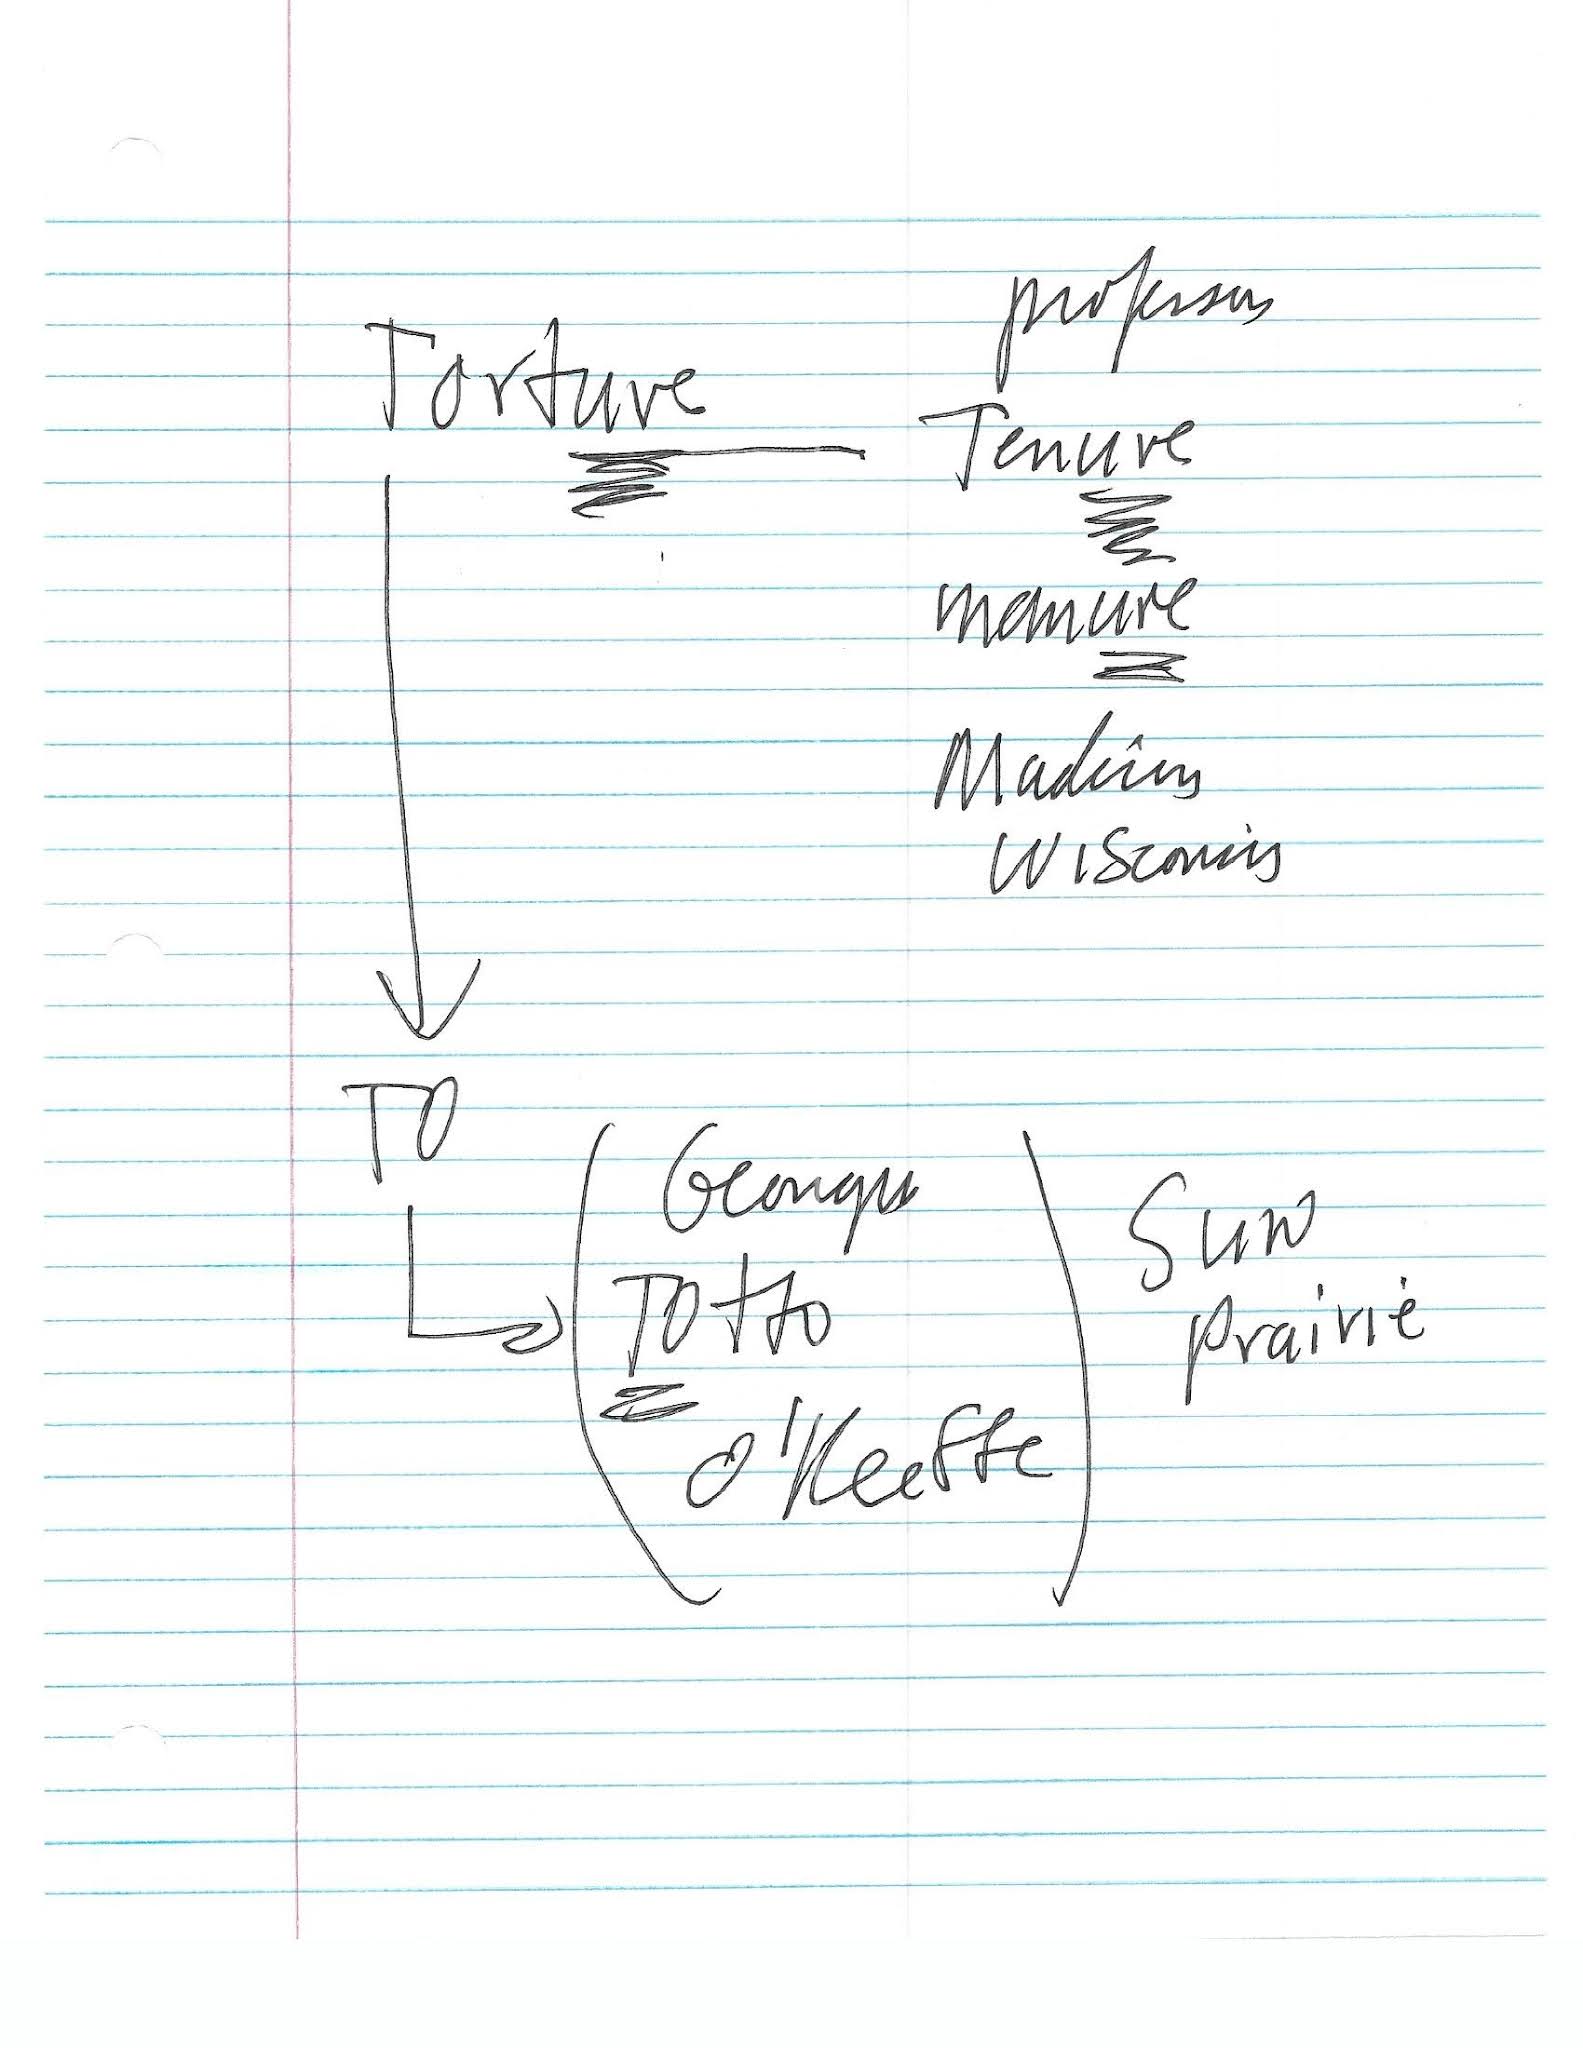 professor
Torture
Tenure
manure
Madison
Wisconsin
TO
Georgia
TOtto
O'Keeffe
Sun
prairie